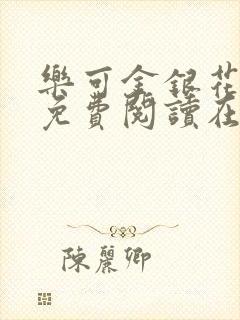 樂可金銀花
免費閱讀在
陳麗卿